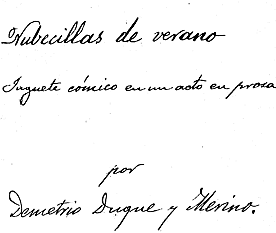 Nubecillas de verano
Juguete cómico en un acto en prosa
por
Demetrio Duque y Merino.